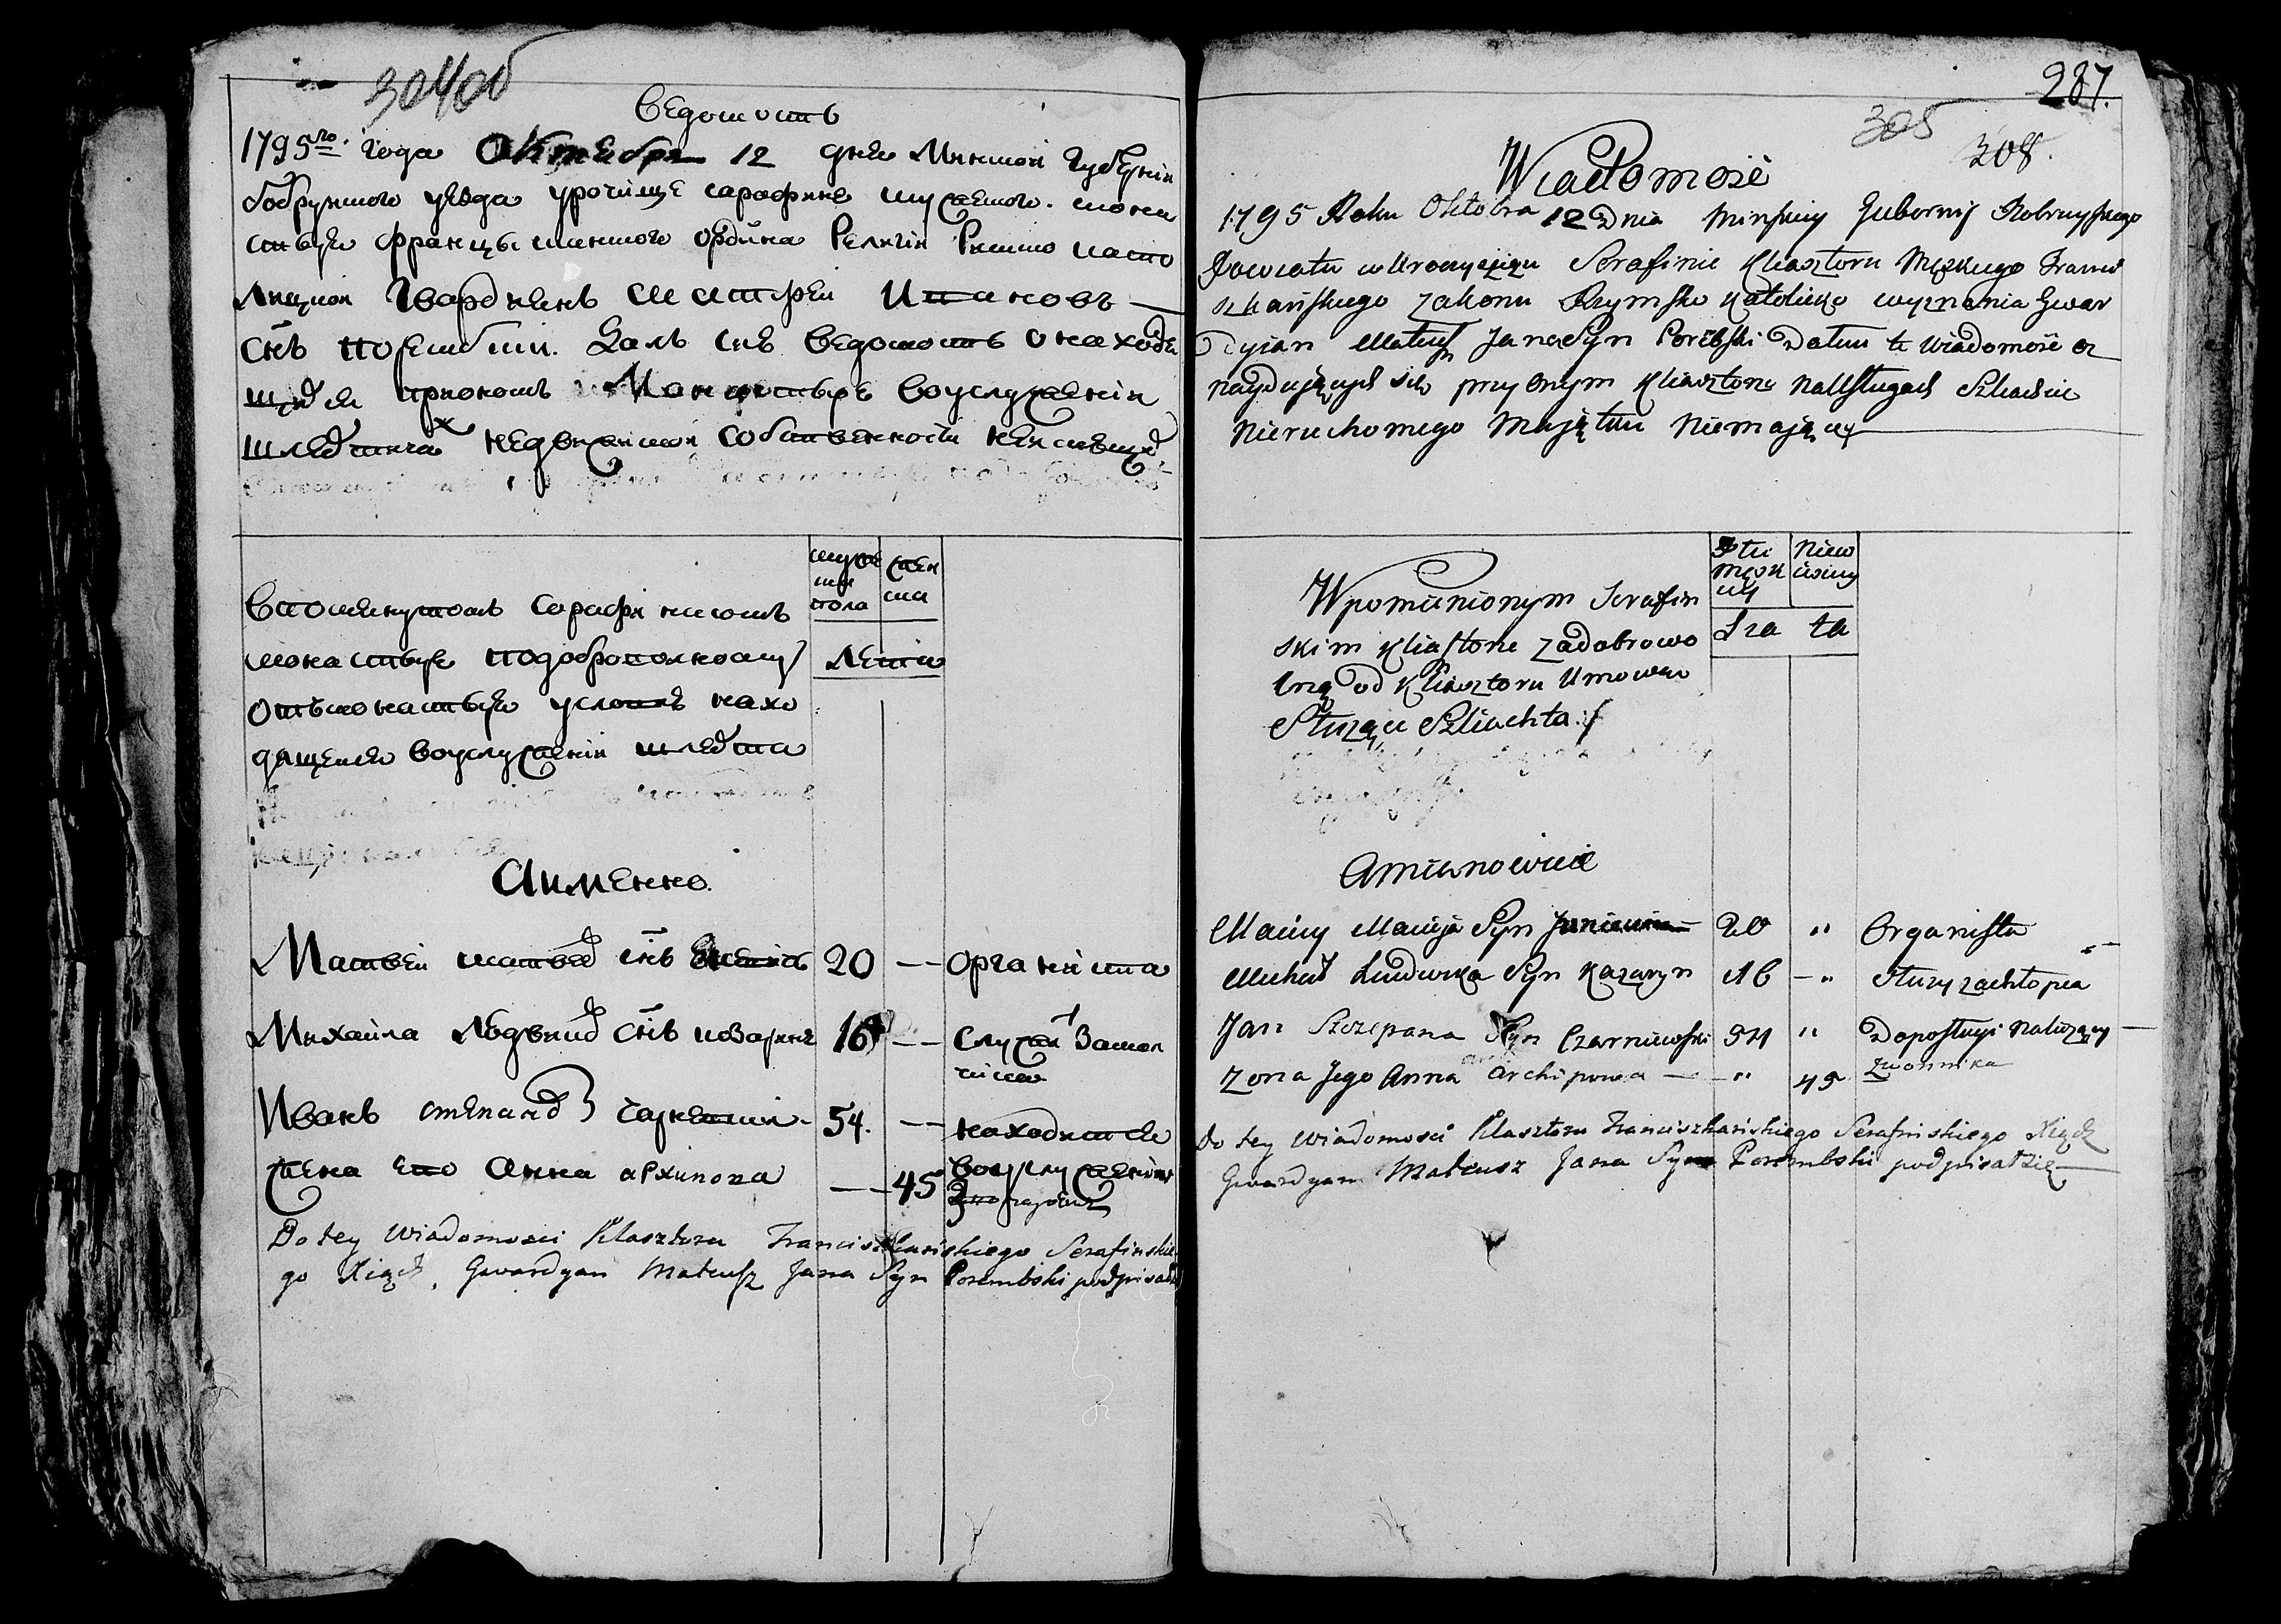 304об
Ведомость
1795го года Октебря 12 дня Минской Губернiи
бобруйского уезда урочище сарафине мужеского мона
стыря францысканского ордина Религiи Римско като
лицкой Гвардиенъ Матфей Ивановъ
снъ Порембски Далъ сию Ведомость онаходя
щихся приономъ Монастыре воуслуженiи
шляхтича недвижимой собственности неимеющих
мужеска
пола
женска
лета
Воспомянутомъ сарафинскомъ
монастыре подоброволному
отмонастыря условiе нахо
дящиеся воуслуженiи шляхта
Аимѣнно.
Матвей матвея снъ 20 — Органиста
Михайла Людвика снъ казарин 16 — служит Захлоп
чика
Иванъ степана чарневский 54. — находитсе
жена его Анна архипова — 45 воуслужении
Do tey Wiadomosci Klasztoru Franciszkańskiego Serafinskie
go Xiądz Gwardyan Mateusz Jana Syn Porembski podpisał
287.
305
308.
Wiadomość
1795 Roku Oktobra 12 Dnia Minskiey Gubernij Bobruyskiego
Powiatu w Uroczyszczu Serafinie Kliasztoru Męzkiego Franci
szkańskiego Zakonu Rzymsko Katolicko wyznania Gwar
Dyian Mateusz Jana Syn Porębski Datuu te Wiadomość oz
naydujących sie przy Onym Kliasztoru na Usługach Szliachcie
Nieruchomego Majątku Niemaiącey
Płci
Męzk
iey
Niew
iesciey
Lza ta
Wpomienionym Serafin
skim Kliasztorze za Dobrowo
lną od Kliasztoru Umowau
Służące Szliachta
Amianowicie
Maciey Macieja Syn 20 " Organista
Michał Ludwika Syn Kazaryn 16 — " Służy zachłopca
Jan Szczepana Syn Czarniewski 54 " Do posługi Należący
Zona Jego Anna Archipowa — — " 45 Zwonnika
Do tey Wiadomosci Klasztoru Franciszkańskiego Serafinskiego Xiądz
Gwardyan Mateusz Jana Syn Porembski podpisał się